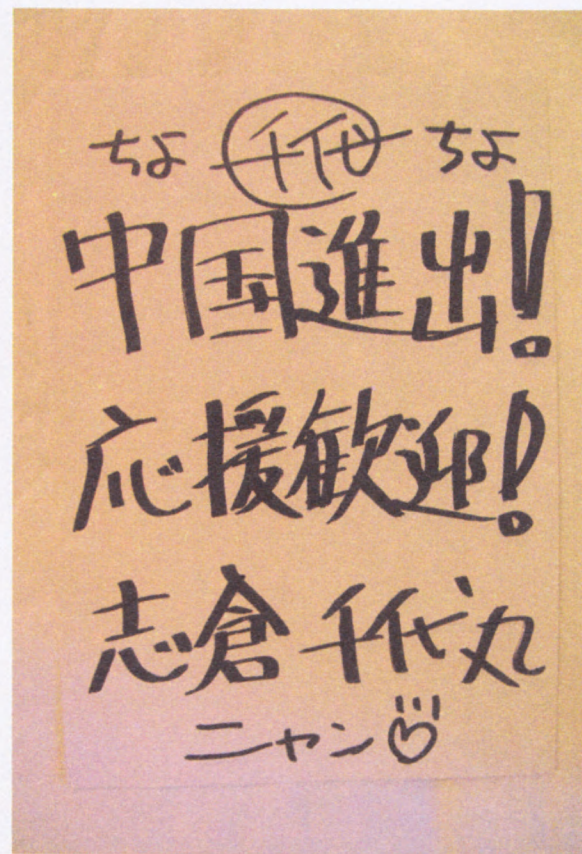 ちよ 千代 ちよ
中国進出!
応援歓迎!
志倉千代丸
ニャン